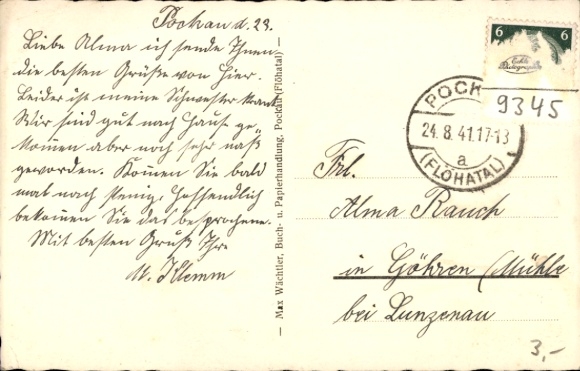 Pockau d. 23.
Liebe Alma ich sende Ihnen
die besten Grüße von hier.
Leider ist meine Schwester krank
Wir sind gut nach Hause ge„
kommen aber noch sehr naß
geworden. Kommen Sie bald
mal nach Penig. Hoffendlich
bekommen Sie das besprochene.
Mit besten Gruß Ihre
M. Klemm
— Max Wächtler, Buch- u. Papierhandlung, Pockau (Flöhatal) —
6 6
Echte Photographie
9345
POCK
24.8.41.17-18
a
(FLÖHATAL)
Frl.
Alma Rauch
in Göhren (Mühle
bei Lunzenau
3,-